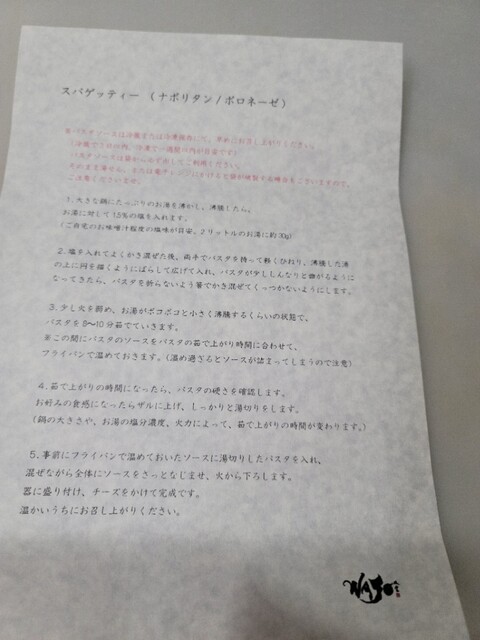 スパゲッティー （ナポリタン / ボロネーゼ）
※パスタソースは冷蔵または冷凍保存にて、早めにお召し上がりください。
パスタソースは袋から必ず出してご利用ください。
そのまま湯せん、または電子レンジにかけると袋が破裂する場合もございますので、
ご注意くださいませ。
1. 大きな鍋にたっぷりのお湯を沸かし、沸騰したら、
お湯に対して1.5%の塩を入れます。
（ご自宅のお味噌汁程度の塩味が目安。2リットルのお湯に約30g）
2. 塩を入れてよくかき混ぜた後、両手でパスタを持って軽くひねり、沸騰した湯
の上に円を描くようにばらして広げて入れ、パスタが少ししんなりと曲がるように
なってきたら、パスタを折らないよう箸でかき混ぜてくっつかないようにします。
3. 少し火を弱め、お湯がポコポコと小さく沸騰するくらいの状態で、
パスタを8〜10分茹でていきます。
※この間にパスタのソースをパスタの茹で上がり時間に合わせて、
フライパンで温めておきます。（温め過ぎるとソースが詰まってしまうので注意）
4. 茹で上がりの時間になったら、パスタの硬さを確認します。
お好みの食感になったらザルに上げ、しっかりと湯切りをします。
（鍋の大きさや、お湯の塩分濃度、火力によって、茹で上がりの時間が変わります。）
5. 事前にフライパンで温めておいたソースに湯切りしたパスタを入れ、
混ぜながら全体にソースをさっとなじませ、火から下ろします。
器に盛り付け、チーズをかけて完成です。
温かいうちにお召し上がりください。